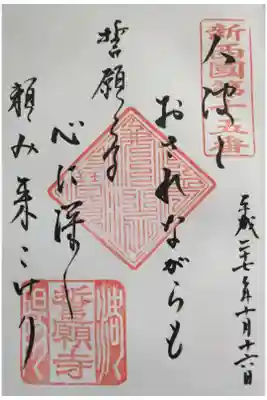 新西國第十五番
人波に
おされながらも
誓願寺
心に深く
頼み来にけり
平成二十七年十月十六日
誓願寺